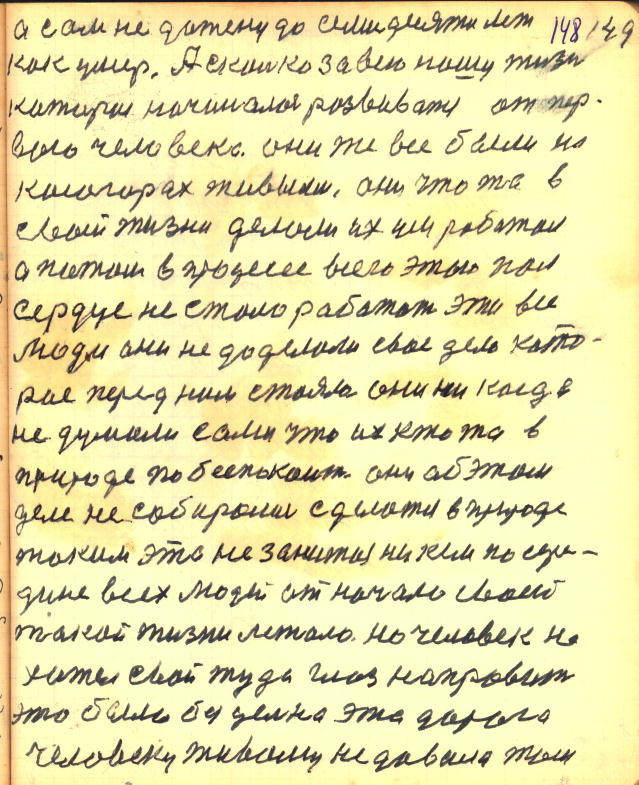 а сам не дотену до семидесяти лет 148 149
как умер. А сколко за всю нашу жизн
каторая начиналас розвиват от пер-
вого человека. они же все были на
косогорах живыми. они что та в
своей жизни делали их ум работал
а потом в процессе всего этого
сердце не стало работат эти все
люди они не доделали свое дело кото-
рае перед ним стояла они ни когда
не думали сами что их кто та в
природе побеспокоит. они об этом
деле не собирались сделать в природе
таким это не занятая ни кем посере-
дине всех людей от начало своей
такой жизни летало. но человек не
хотел свой туда глаз направит
это была бы целна эта дорога
человеку живому не давала там